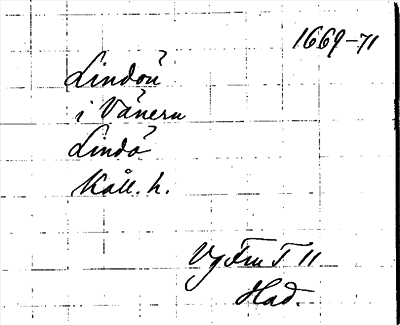 1669-71
Lindön
i Vänern
Lindö
Kåll. h.
Vg Fru T 11
Had.